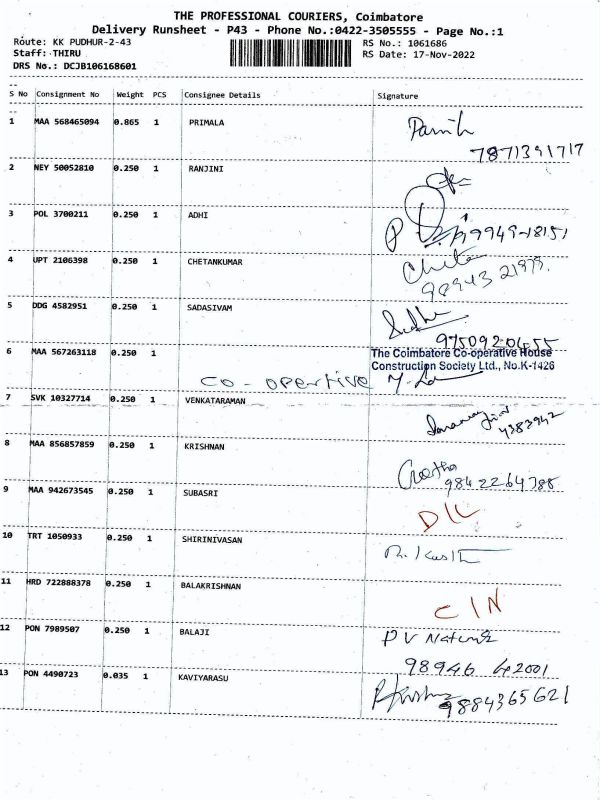 THE PROFESSIONAL COURIERS, Coimbatore
Delivery Runsheet - P43 - Phone No.:0422-3505555 - Page No.:1
Route: KK PUDHUR-2-43 RS No.: 1061686
Staff: THIRU RS Date: 17-Nov-2022
DRS No.: DCJB106168601
S No Consignment No Weight PCS Consignee Details Signature
1 MAA 568465094 0.865 1 PRIMALA
7871391717
2 NEY 50052810 0.250 1 RANJINI
3 POL 3700211 0.250 1 ADHI
99949-18151
4 UPT 2106398 0.250 1 CHETANKUMAR
98943 21979.
5 DDG 4582951 0.250 1 SADASIVAM
9750920455
6 MAA 567263118 0.250 1 The Coimbatore Co-operative House
Construction Society Ltd., No.K-1426
CO-OPERTIVE
7 SVK 10327714 0.250 1 VENKATARAMAN
4383942
8 MAA 856857859 0.250 1 KRISHNAN
9842264788
9 MAA 942673545 0.250 1 SUBASRI
D/L
10 TRT 1050933 0.250 1 SHIRINIVASAN
11 HRD 722888378 0.250 1 BALAKRISHNAN
C/N
12 PON 7989507 0.250 1 BALAJI
98946 42001
13 PON 4490723 0.035 1 KAVIYARASU
9884365621